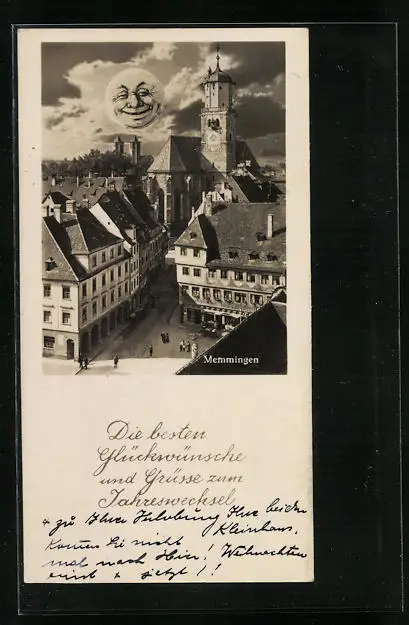 Memmingen
Die besten
Glückwünsche
und Grüsse zum
Jahreswechsel
+ zu Ihrer Ihre beiden
Kommen Sie nicht
mal nach hier! Weihnachten
einst + jetzt!!